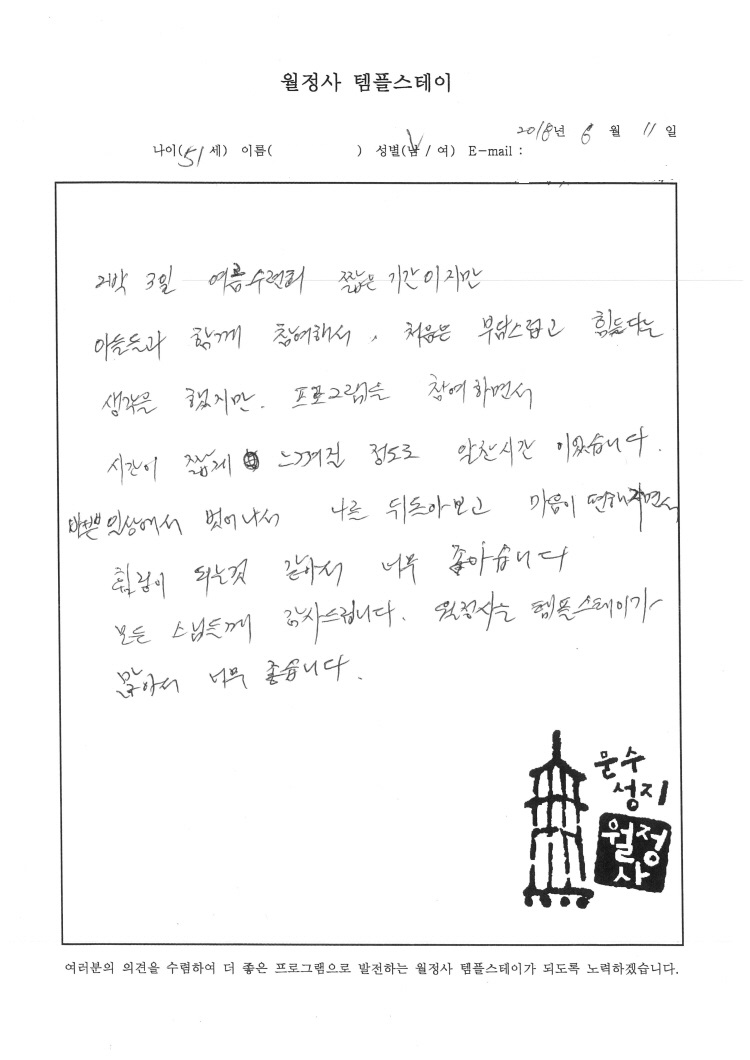 월정사 템플스테이
2018년 6 월 11 일
나이(51세) 이름( ) 성별(남 / 여) E-mail :
2박 3일 여름수련회 짧은 기간이지만
아들들과 함께 참여해서, 처음은 부담스럽고 힘들다는
생각을 했지만. 프로그램을 참여하면서
시간이 짧게 느껴질 정도로 알찬시간 이었습니다.
바쁜 일상에서 벗어나서 나를 뒤돌아보고 마음이 편해지면서
힐링이 되는것 같아서 너무 좋아습니다
모든 스님들께 감사드립니다. 월정사는 템플스테이가
많아서 너무 좋습니다.
문수
성지
월정
사
여러분의 의견을 수렴하여 더 좋은 프로그램으로 발전하는 월정사 템플스테이가 되도록 노력하겠습니다.